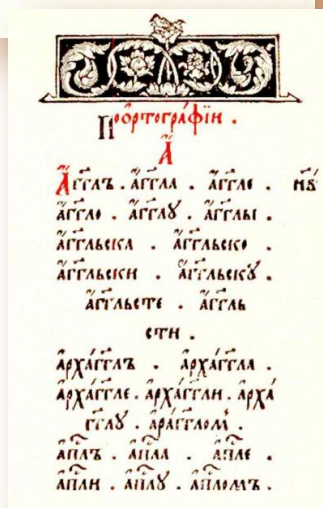 Поортогра́фїи .
А҆
А҆́гг҃лъ . а҆́гг҃ла . а҆́гг҃ле .
а҆́гг҃ло . а҆́гг҃лу . а҆́гг҃лы .
а҆́гг҃льска . а҆́гг҃льско .
а҆́гг҃льски . а҆́гг҃льску .
а҆́гг҃льсте . а҆́гг҃ль
сти .
а҆рха́гг҃лъ . а҆рха́гг҃ла .
а҆рха́гг҃ле . а҆рха́гг҃ли . а҆рха́
гг҃лу . а҆ра́гг҃лом .
а҆п҃лъ . а҆п҃ла . а҆п҃ле .
а҆п҃ли . а҆п҃лу . а҆п҃ломъ .